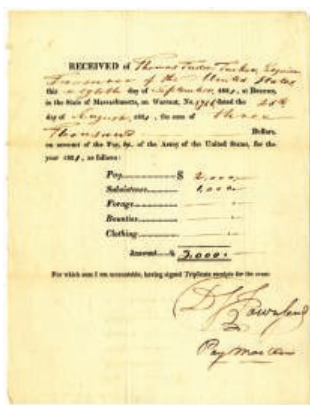 RECEIVED of Thomas Tudor Tucker, Esquire
Treasurer of the United States
this eighth day of September, 182 , at Boston,
in the State of Massachusetts, on Warrant, No. dated the 28th
day of August, 182 , the sum of three
Thousand Dollars,
on account of the Pay, &c. of the Army of the United States, for the
year 182 , as follows:
Pay, $ 2,000
Subsistence, 1,000
Forage,
Bounties
Clothing
Amount $ 3,000
For which sum I am accountable, having signed Triplicate receipts for the same
D S Townsend
Pay Master